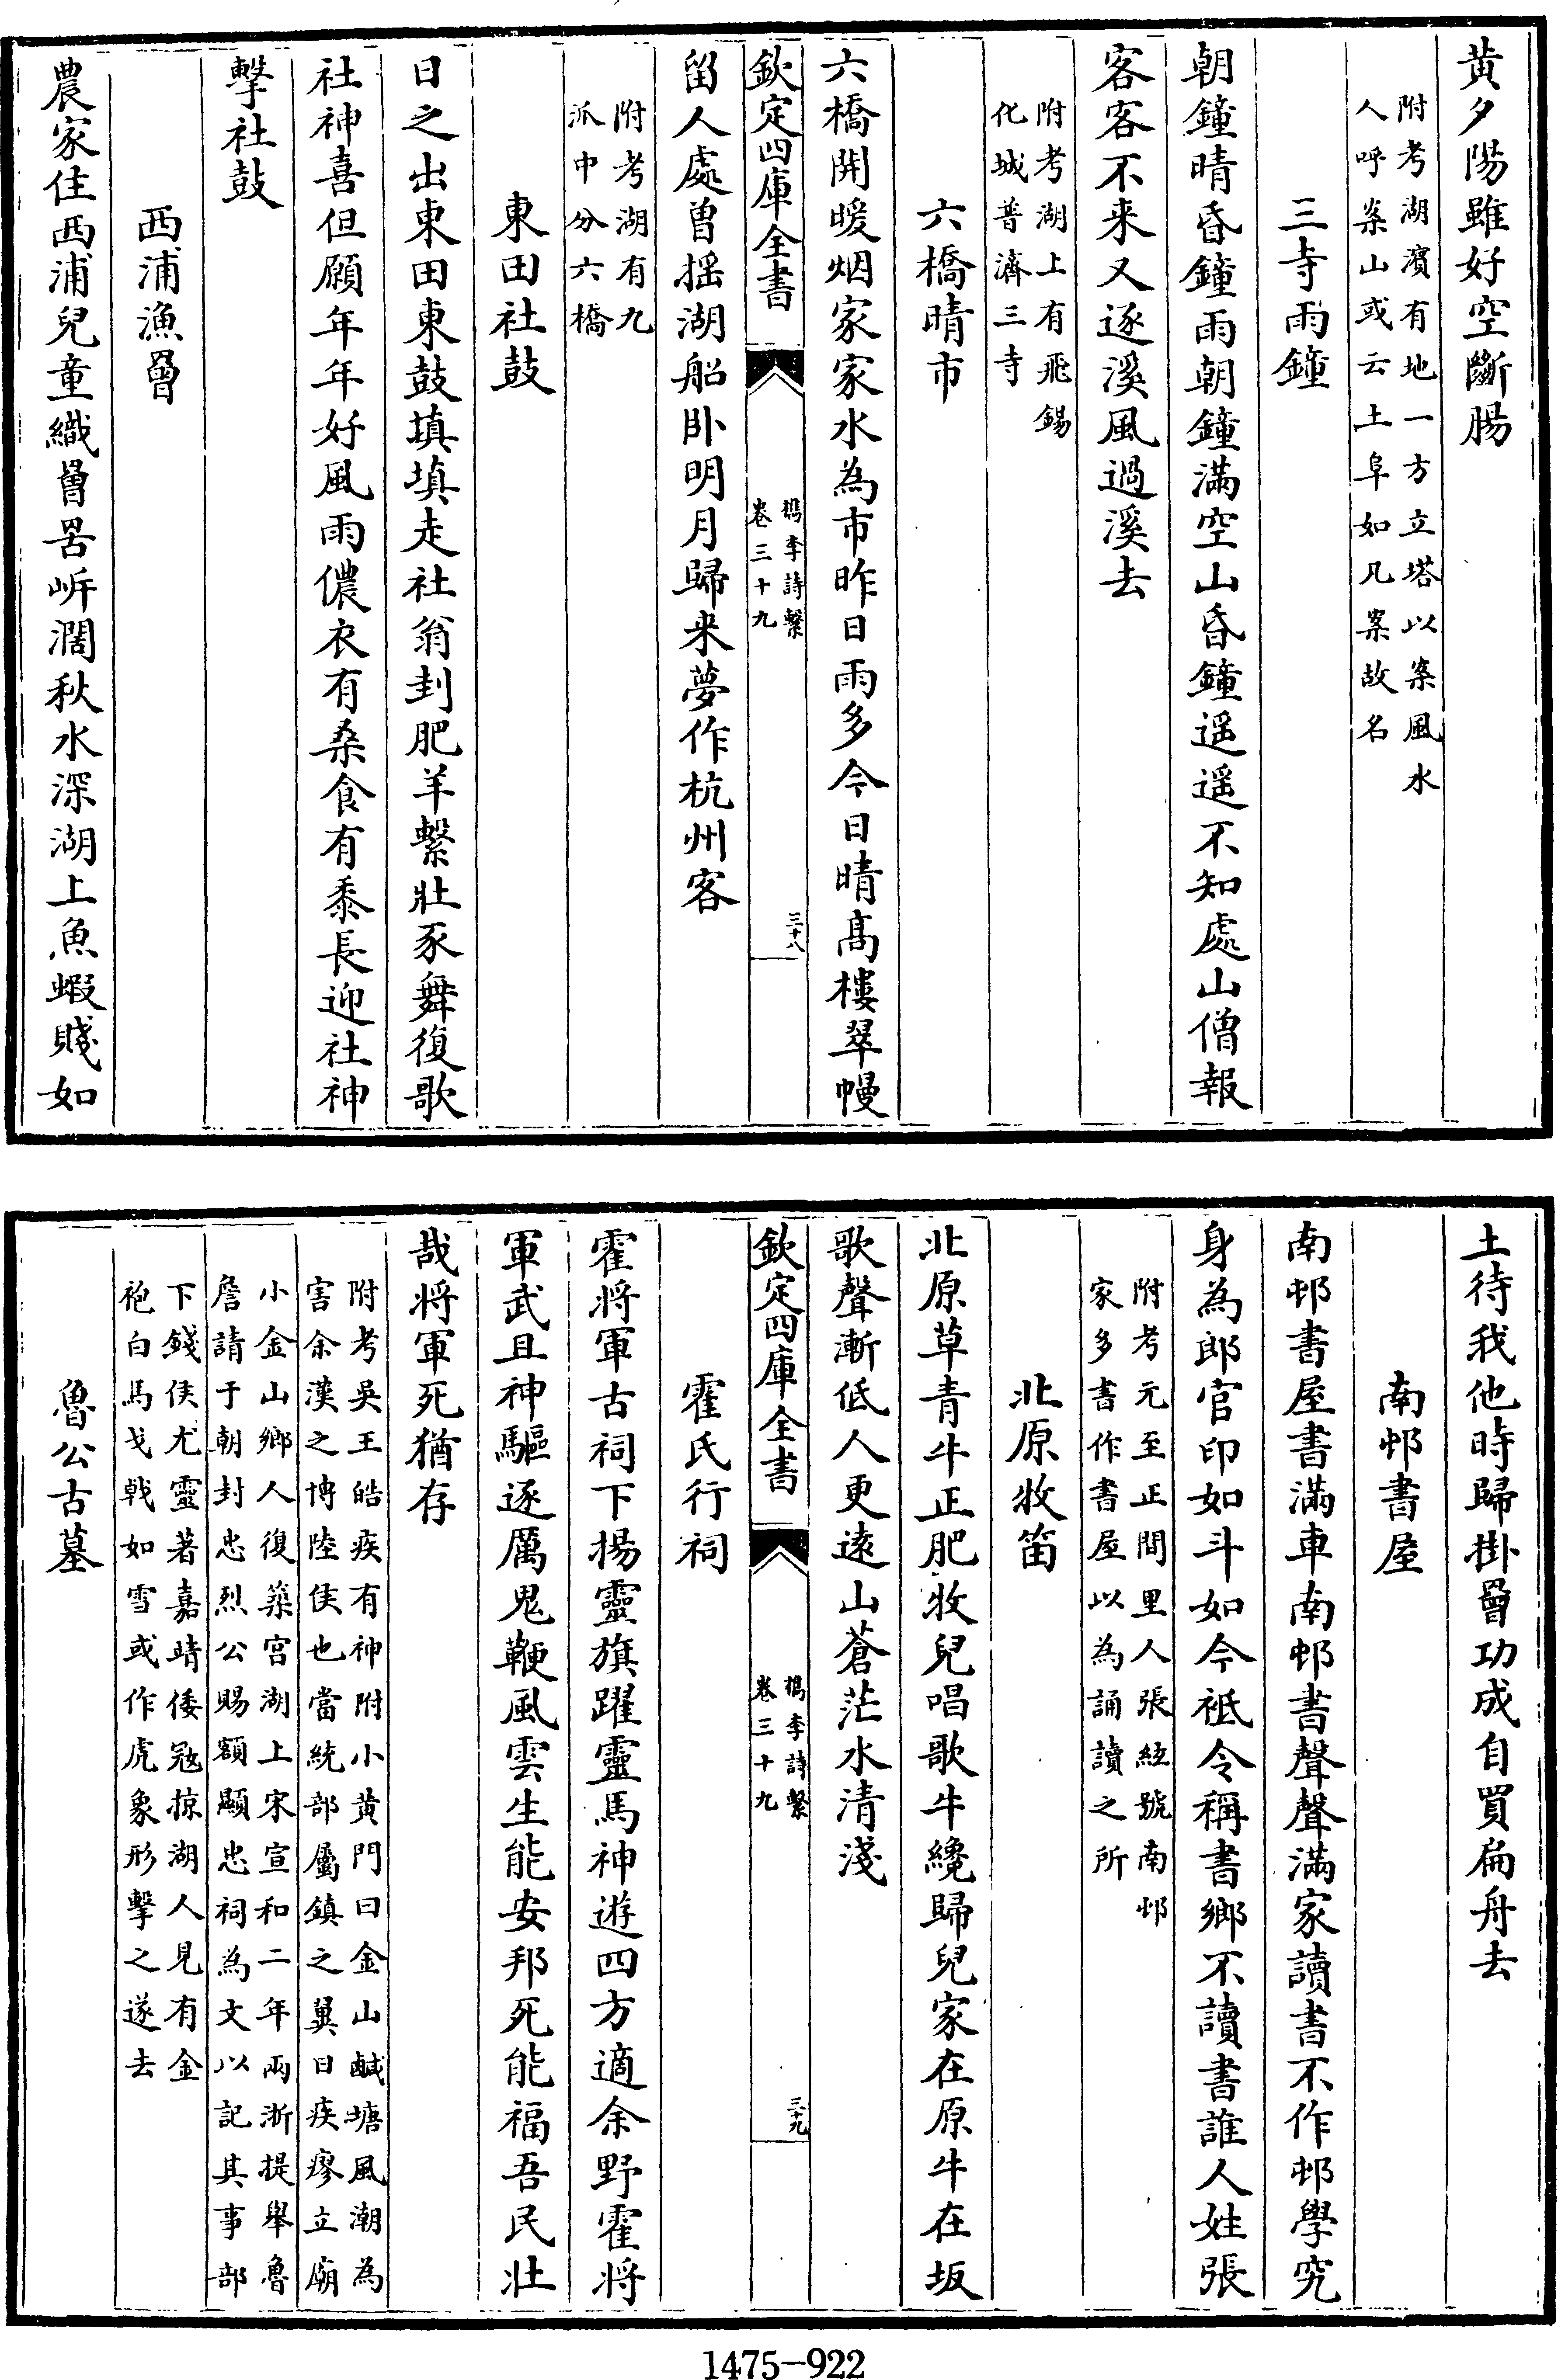 黄夕陽雖好空斷腸
附考湖濱有地一方立塔以案風水
人呼案山或云土阜如几案故名
三寺雨鐘
朝鐘晴昏鐘雨朝鐘滿空山昏鐘遥遥不知處山僧報
客客不来又逐溪風過溪去
附考湖上有飛錫
化城普濟三寺
六橋晴市
六橋開暖烟家家水為市昨日雨多今日晴髙樓翠幔
欽定四庫全書
檇李詩繫
卷三十九
三十八
留人處曽揺湖船卧明月歸来夢作杭州客
附考湖有九
派中分六橋
東田社鼓
日之出東田東鼓填填走社翁刲肥羊繫壯豕舞復歌
社神喜但願年年好風雨儂衣有桑食有黍長迎社神
擊社鼓
西浦漁罾
農家住西浦兒童織罾罟㟁濶秋水深湖上魚蝦賤如
土待我他時歸掛罾功成自買扁舟去
南邨書屋
南邨書屋書滿車南邨書聲聲滿家讀書不作邨學究
身為郎官印如斗如今祗令稱書鄉不讀書誰人姓張
附考元至正間里人張紘號南邨
家多書作書屋以為誦讀之所
北原牧笛
北原草青牛正肥牧兒唱歌牛纔歸兒家在原牛在坂
歌聲漸低人更遠山蒼茫水清淺
欽定四庫全書
檇李詩繫
卷三十九
三十九
霍氏行祠
霍將軍古祠下揚靈旗躍靈馬神遊四方適余野霍將
軍武且神驅逐厲鬼鞭風雲生能安邦死能福吾民壯
哉將軍死猶存
附考吳王皓疾有神附小黄門曰金山鹹塘風潮為
害余漢之博陸侯也當統部屬鎮之翼日疾瘳立廟
小金山鄉人復築宫湖上宋宣和二年兩浙提舉魯
詹請于朝封忠烈公賜額顯忠祠為文以記其事部
下錢侯尤靈著嘉靖倭宼掠湖人見有金
袍白馬戈戟如雪或作虎象形擊之遂去
魯公古墓
1475-922